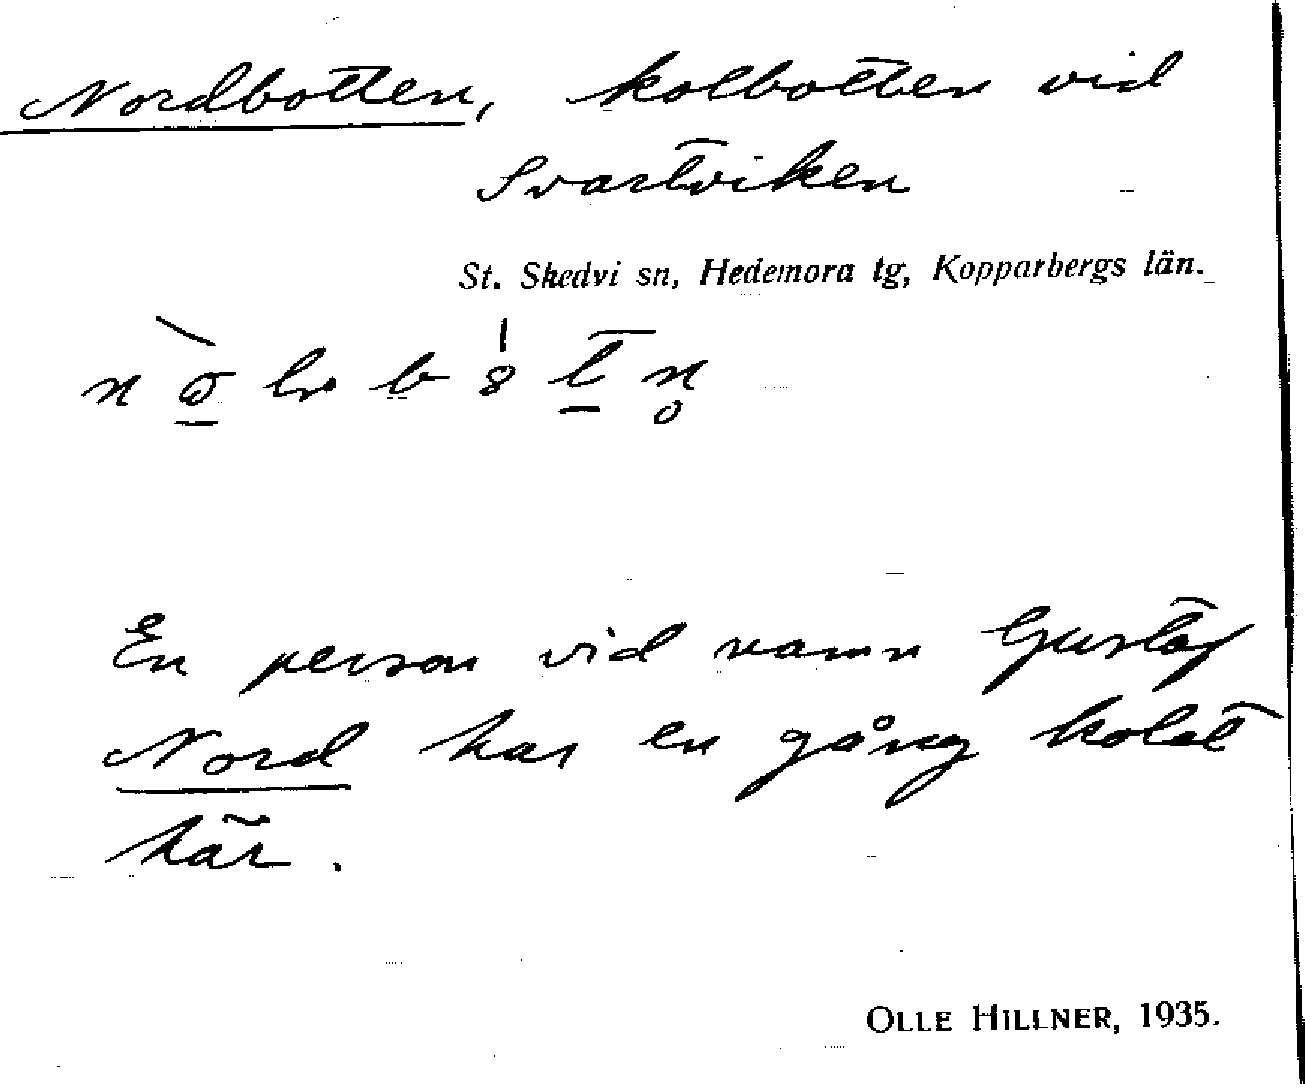 Nordbotten, kolbotten vid
Svartviken
St. Skedvi sn, Hedemora tg, Kopparbergs län.
En person vid namn Gustaf
Nord har en gång kolat
här.
OLLE HILLNER, 1935.